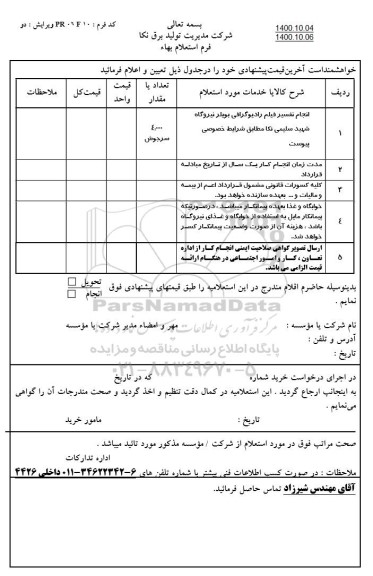 1400.10.04
1400.10.06
بسمه تعالی
شرکت مدیریت تولید برق نکا
فرم استعلام بهاء
کد فرم : PR ۰۹ F ۱۰ ویرایش : دو
خواهشمنداست آخرین قیمت پیشنهادی خود را درجدول ذیل تعیین و اعلام فرمائید
ردیف
شرح کالایا خدمات مورد استعلام
تعداد یا مقدار
قیمت واحد
قیمت کل
ملاحظات
۱
انجام تفسیر فیلم رادیوگرافی بویلر نیروگاه
شهید سلیمی نکا مطابق شرایط خصوصی
پیوست
٤,٠٠٠
سرجوش
۲
مدت زمان انجام کار یک سال از تاریخ مبادله
قرارداد
۳
کلیه کسورات قانونی مشمول قرارداد اعم از بیمه
و مالیات و ... بعهده سازنده خواهد بود.
٤
خوابگاه و غذا بعهده پیمانکار میباشد ، درصورتیکه
پیمانکار مایل به استفاده از خوابگاه و غذای نیروگاه
باشد ، هزینه آن از صورت وضعیت پیمانکار کسر
خواهد شد.
۵
ارسال تصویر گواهی صلاحیت ایمنی انجام کار از اداره
تعاون ، کار و امور اجتماعی در هنگام ارائه
قیمت الزامی می باشد.
بدینوسیله حاضرم اقلام مندرج در این استعلامیه را طبق قیمتهای پیشنهادی فوق
تحویل
انجام
نمایم .
نام شرکت یا مؤسسه :
مهر و امضاء مدیر شرکت یا مؤسسه
آدرس و تلفن :
تاریخ :
ParsNamadData
پایگاه اطلاع رسانی مناقصه و مزایده
۰۲۱-۸۸۳۴۹۶۷۰-۵
در اجرای درخواست خرید شماره
که در تاریخ
به اینجانب ارجاع گردید . این استعلامیه در کمال دقت تنظیم و اخذ گردید و صحت مندرجات آن را گواهی
می‌نمایم .
تاریخ :
مامور خرید
صحت مراتب فوق در مورد استعلام از شرکت / مؤسسه مذکور مورد تائید میباشد .
اداره تدارکات
ملاحظات : در صورت کسب اطلاعات فنی بیشتر با شماره تلفن های ۶-۳۴۶۲۲۳۴۲-۰۱۱ داخلی ۴۴۲۶
آقای مهندس شیرزاد تماس حاصل فرمائید.